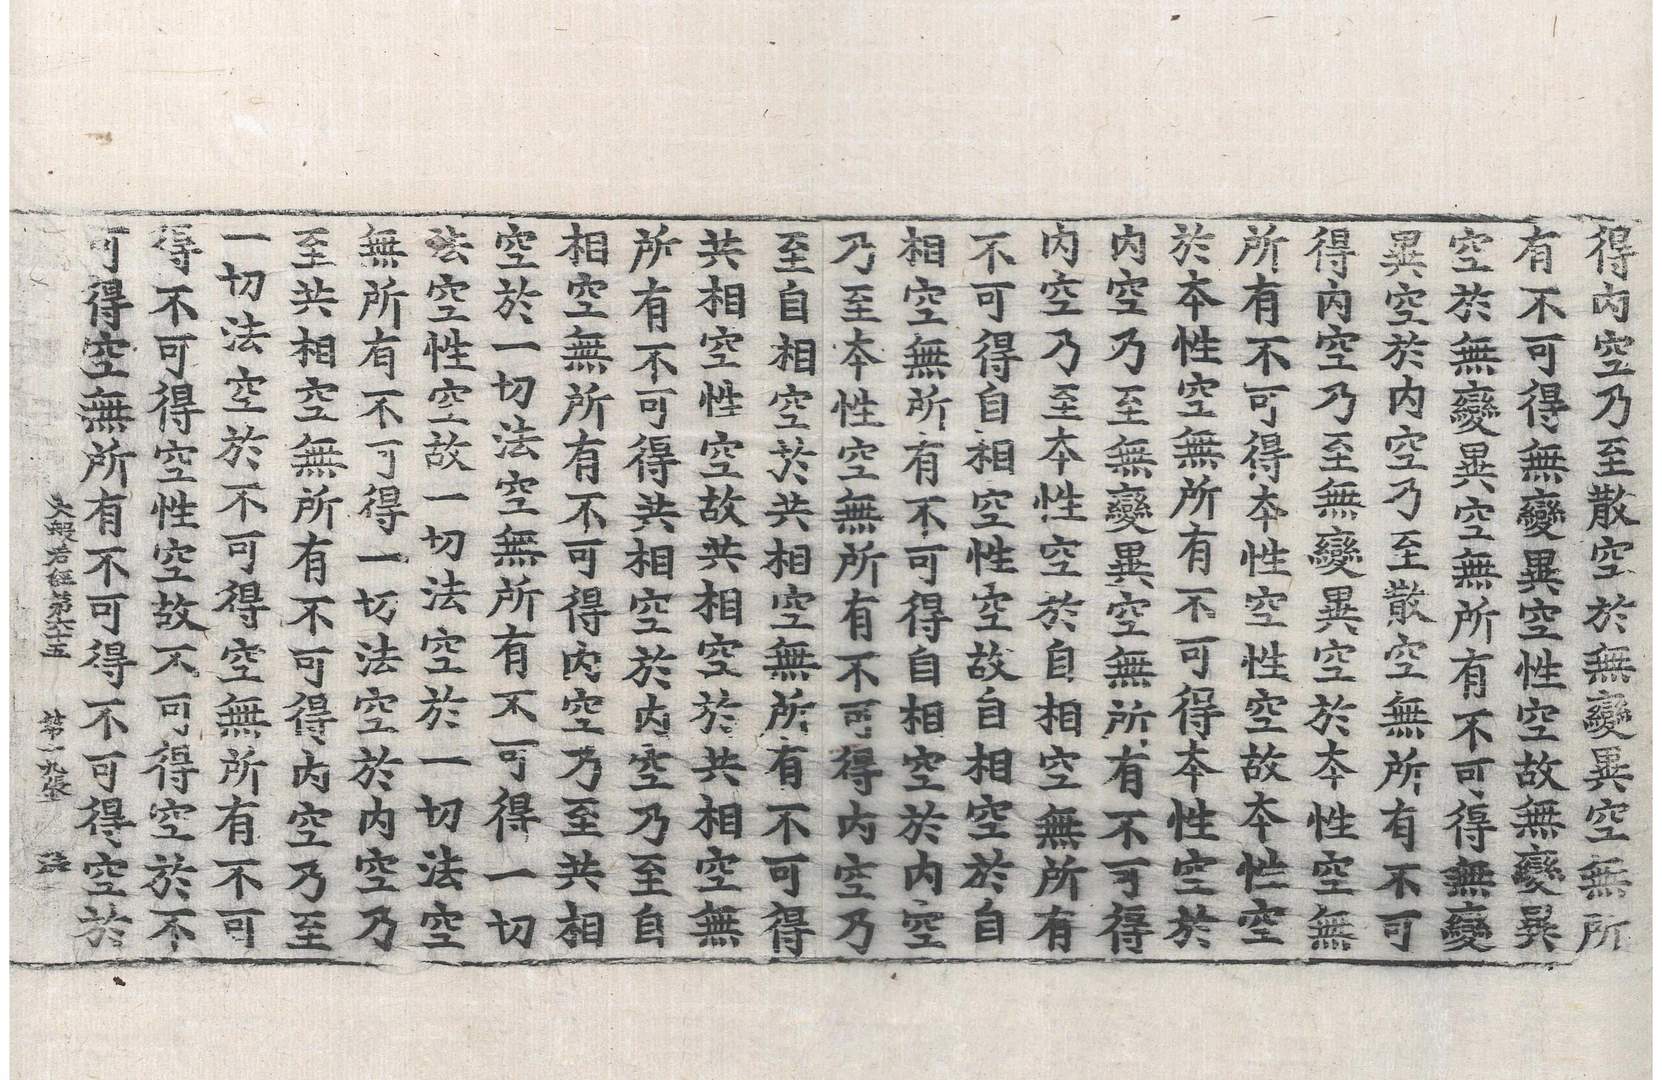 得内空乃至散空於無變異空無所
有不可得無變異空性空故無變異
空於無變異空無所有不可得無變
異空於内空乃至散空無所有不可
得内空乃至無變異空於本性空無
所有不可得本性空性空故本性空
於本性空無所有不可得本性空於
内空乃至無變異空無所有不可得
内空乃至本性空於自相空無所有
不可得自相空性空故自相空於自
相空無所有不可得自相空於内空
乃至本性空無所有不可得内空乃
至自相空於共相空無所有不可得
共相空性空故共相空於共相空無
所有不可得共相空於内空乃至自
相空無所有不可得内空乃至共相
空於一切法空無所有不可得一切
法空性空故一切法空於一切法空
無所有不可得一切法空於内空乃
至共相空無所有不可得内空乃至
一切法空於不可得空無所有不可
得不可得空性空故不可得空於不
可得空無所有不可得不可得空於
大般若經第六十五 第十九張